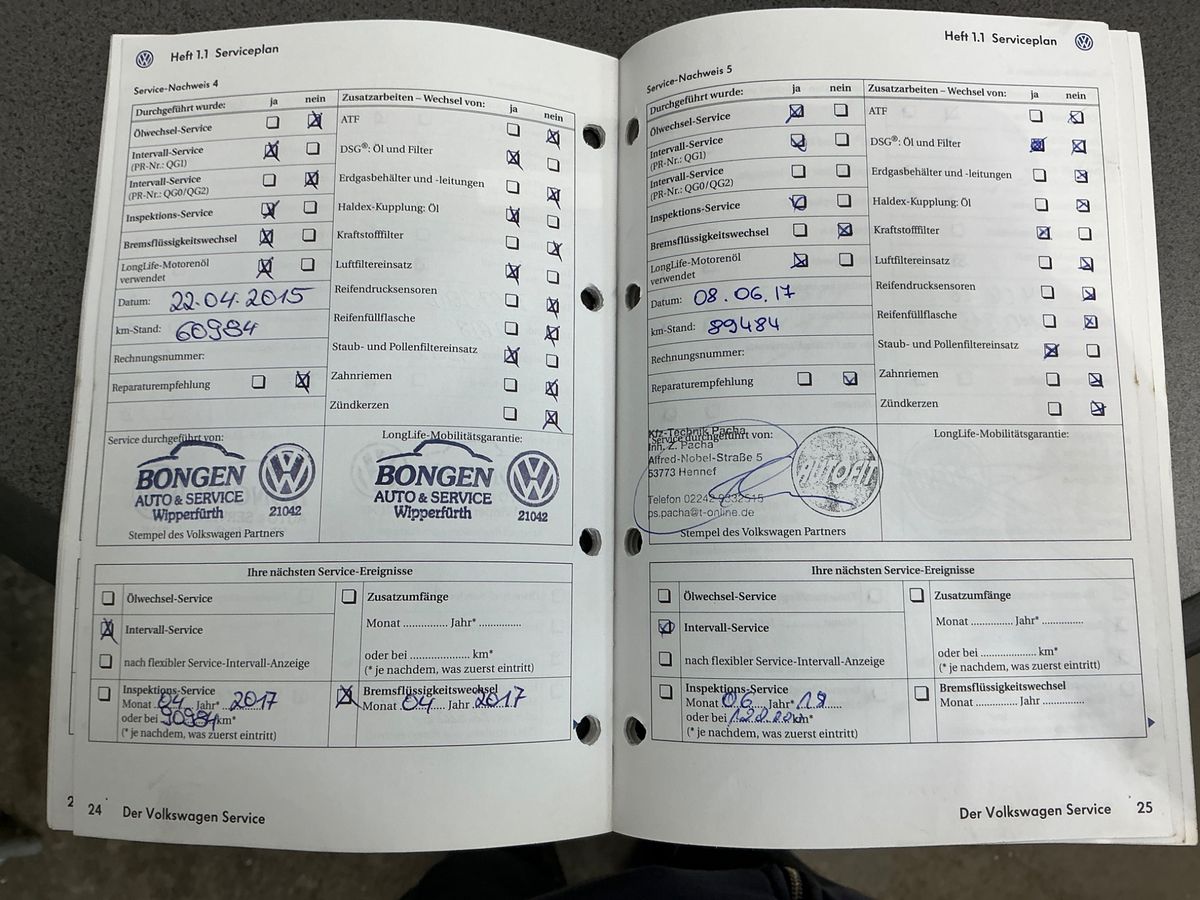 Heft 1.1 Serviceplan
Service-Nachweis 4
Durchgeführt wurde: ja nein
Ölwechsel-Service
Intervall-Service
(PR-Nr.: QG1)
Intervall-Service
(PR-Nr.: QG0/QG2)
Inspektions-Service
Bremsflüssigkeitswechsel
LongLife-Motorenöl
verwendet
Datum: 22.04.2015
km-Stand: 60984
Rechnungsnummer:
Reparaturempfehlung
Zusatzarbeiten – Wechsel von: ja nein
ATF
DSG®: Öl und Filter
Erdgasbehälter und -leitungen
Haldex-Kupplung: Öl
Kraftstofffilter
Luftfiltereinsatz
Reifendrucksensoren
Reifenfüllflasche
Staub- und Pollenfiltereinsatz
Zahnriemen
Zündkerzen
Service durchgeführt von:
BONGEN
AUTO & SERVICE
Wipperfürth
21042
Stempel des Volkswagen Partners
LongLife-Mobilitätsgarantie:
BONGEN
AUTO & SERVICE
Wipperfürth
21042
Ihre nächsten Service-Ereignisse
Ölwechsel-Service
Intervall-Service
nach flexibler Service-Intervall-Anzeige
Inspektions-Service
Monat 04 Jahr* 2017
oder bei 90984 km*
(* je nachdem, was zuerst eintritt)
Zusatzumfänge
Monat .............. Jahr* ..............
oder bei .................... km*
(* je nachdem, was zuerst eintritt)
Bremsflüssigkeitswechsel
Monat 04 Jahr 2017
2
24 Der Volkswagen Service
Heft 1.1 Serviceplan
Service-Nachweis 5
Durchgeführt wurde: ja nein
Ölwechsel-Service
Intervall-Service
(PR-Nr.: QG1)
Intervall-Service
(PR-Nr.: QG0/QG2)
Inspektions-Service
Bremsflüssigkeitswechsel
LongLife-Motorenöl
verwendet
Datum: 08.06.17
km-Stand: 89484
Rechnungsnummer:
Reparaturempfehlung
Zusatzarbeiten – Wechsel von: ja nein
ATF
DSG®: Öl und Filter
Erdgasbehälter und -leitungen
Haldex-Kupplung: Öl
Kraftstofffilter
Luftfiltereinsatz
Reifendrucksensoren
Reifenfüllflasche
Staub- und Pollenfiltereinsatz
Zahnriemen
Zündkerzen
Kfz-Technik Pacha
Service durchgeführt von:
Inh. Z. Pacha
Alfred-Nobel-Straße 5
53773 Hennef
Telefon 02242 9332515
ps.pacha@t-online.de
AUTOFIT
Stempel des Volkswagen Partners
LongLife-Mobilitätsgarantie:
Ihre nächsten Service-Ereignisse
Ölwechsel-Service
Intervall-Service
nach flexibler Service-Intervall-Anzeige
Inspektions-Service
Monat 06 Jahr* 18
oder bei km*
(* je nachdem, was zuerst eintritt)
Zusatzumfänge
Monat .............. Jahr* ..............
oder bei .................... km*
(* je nachdem, was zuerst eintritt)
Bremsflüssigkeitswechsel
Monat .............. Jahr ..............
Der Volkswagen Service 25